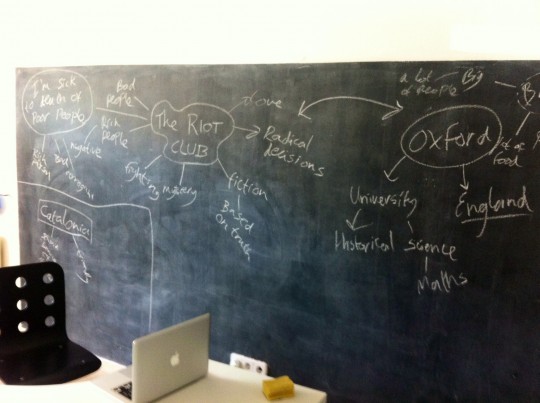 I'm sick
to Death of
Poor People
Bad
people
Rich
people
negative
The RIOT
CLUB
fighting
mystery
fiction
Based
on truth
above
Radical
decisions
a lot
of people
Big
Oxford
food
University
England
Historical
science
Maths
Catalonia